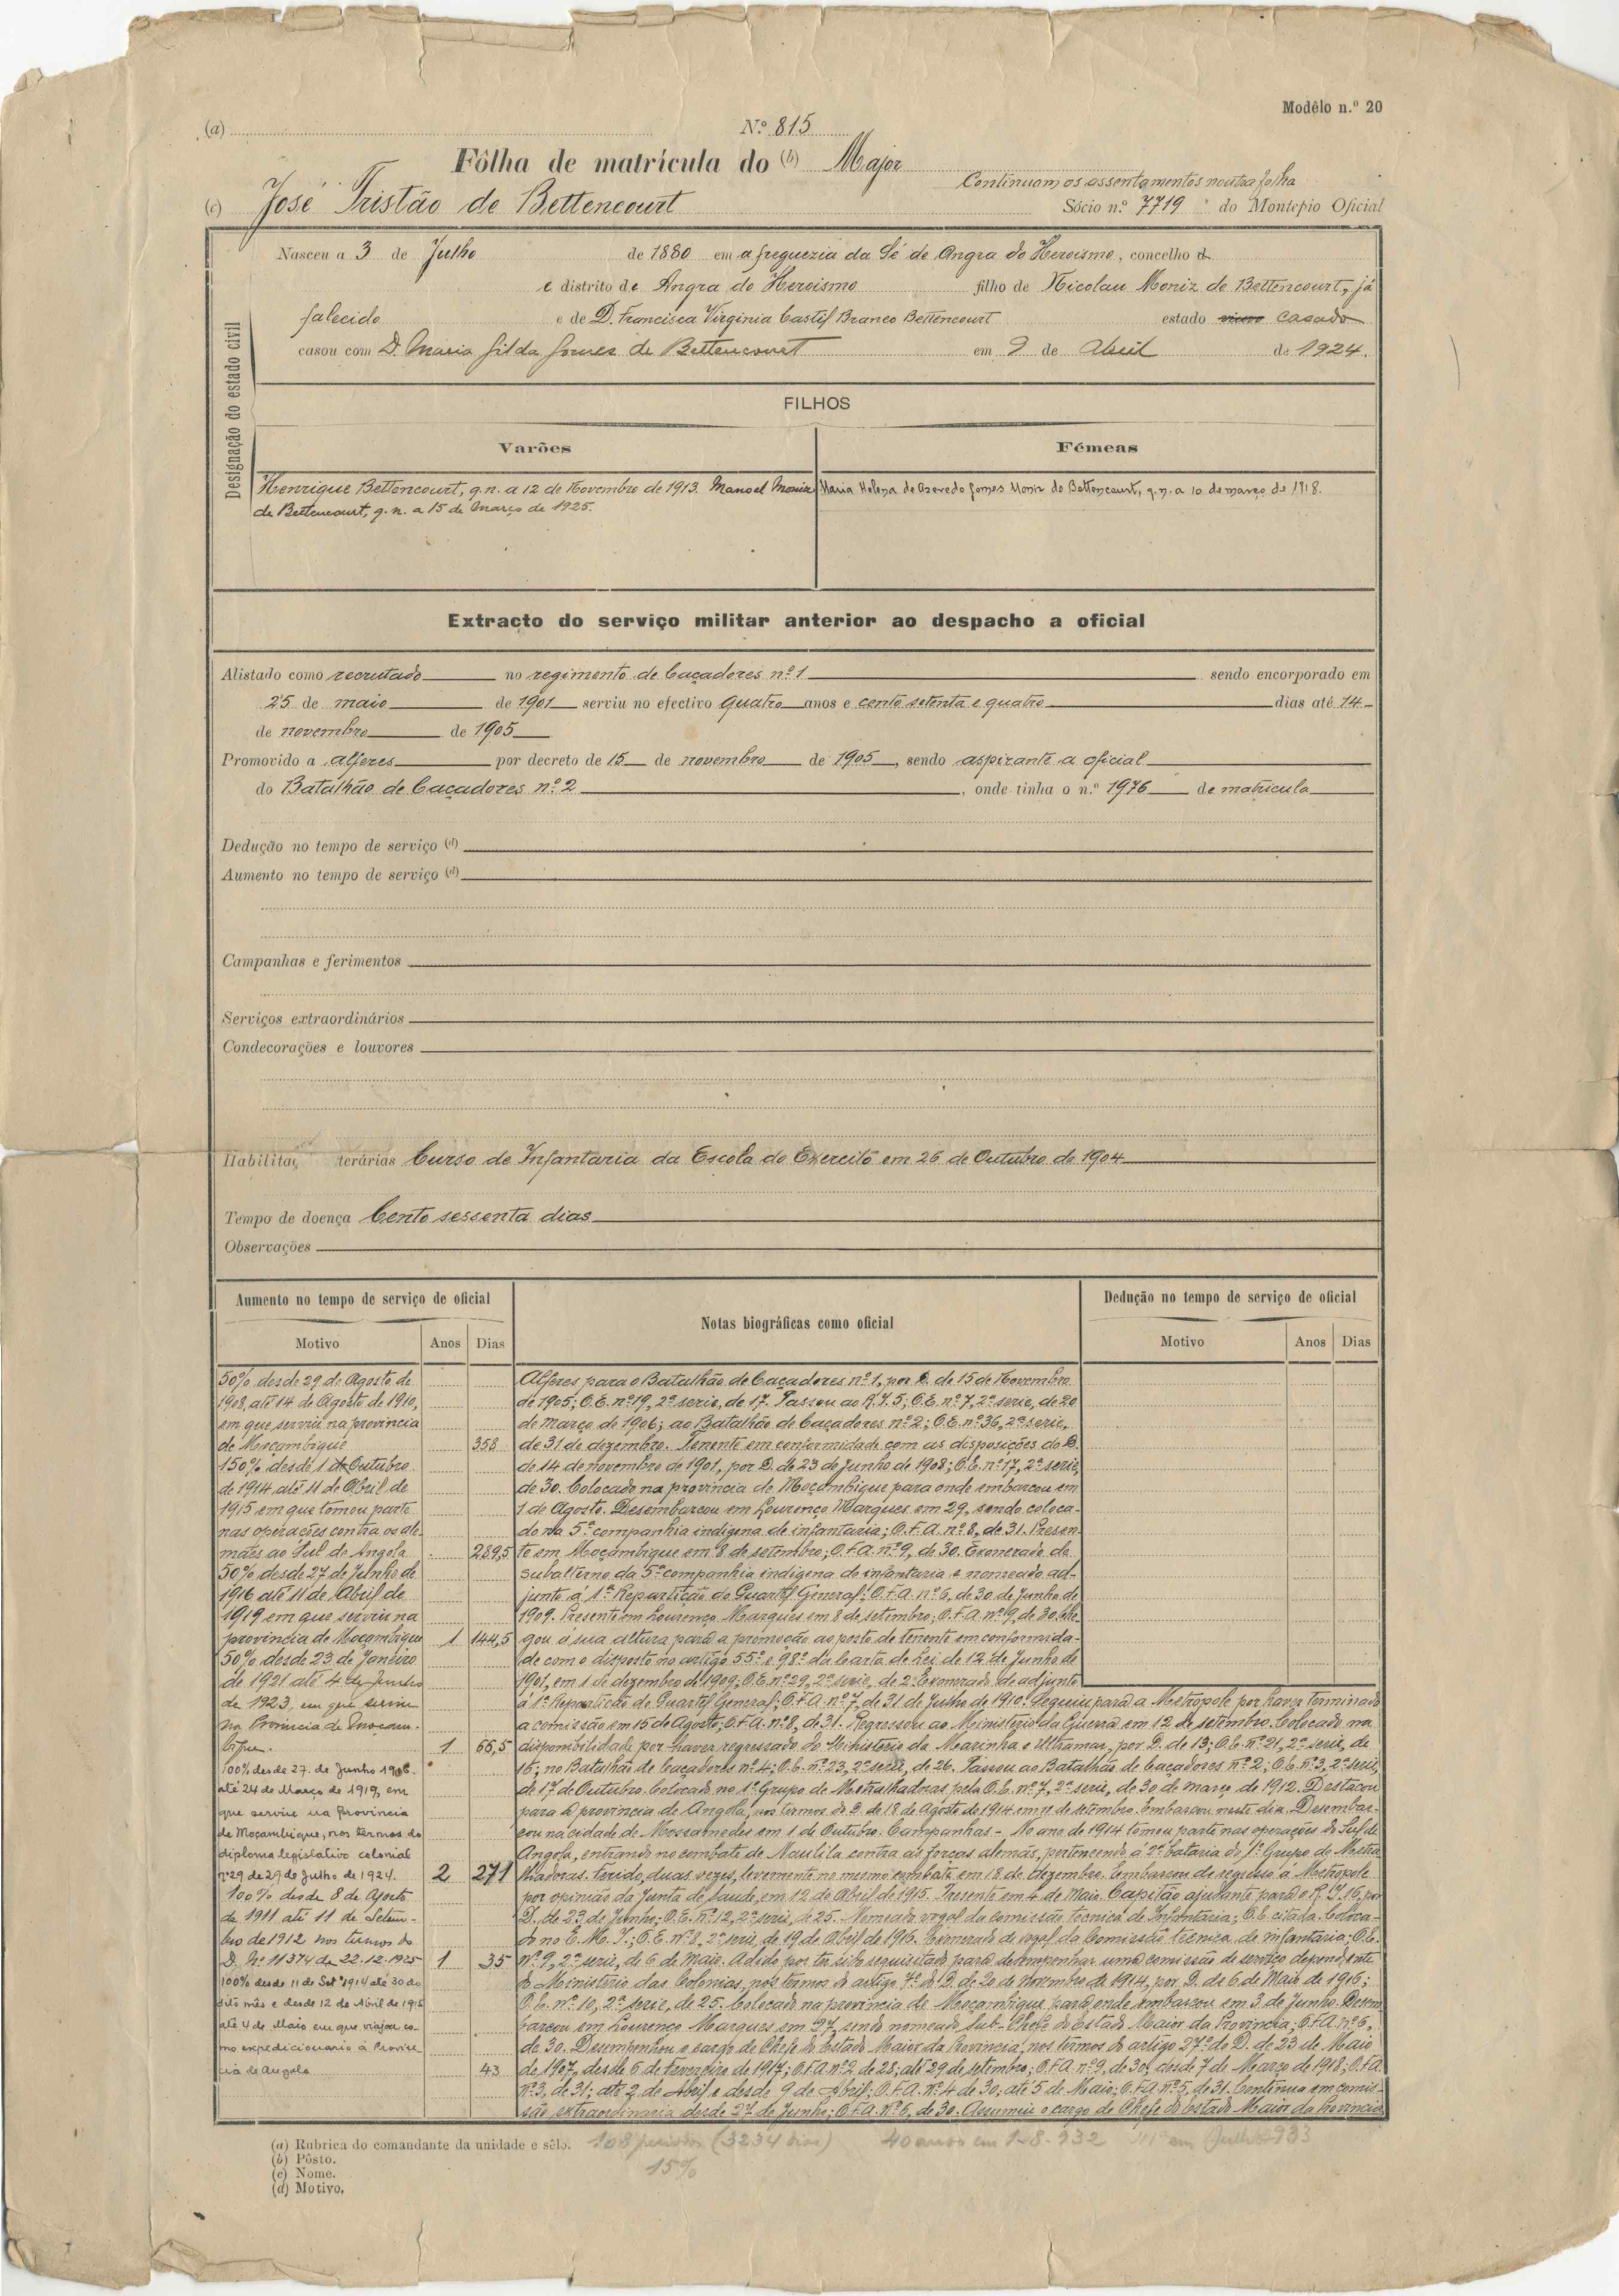 Modêlo n.º 20
(a)
N.º 815
Fôlha de matrícula do (b) Major
Continuam os assentamentos noutra folha
(c) José Tristão de Bettencourt
Sócio n.º 7719 do Montepio Oficial
Designação do estado civil
Nasceu a 3 de Julho de 1880 em a freguezia da Sé de Angra do Heroismo, concelho d
e distrito de Angra do Heroismo filho de Nicolau Moniz de Bettencourt, já
falecido e de D. Francisca Virginia Castil Branco Bettencourt estado casado
casou com D. Maria Gilda Gomes de Bettencourt em 9 de Abril de 1924.
FILHOS
Varões
Fémeas
Henrique Bettencourt, q.n. a 12 de Novembro de 1913. Manoel Moniz
de Bettencourt, q.n. a 15 de Março de 1925.
Maria Helena de Azevedo Gomes Moniz de Bettencourt, q.n. a 10 de março de 1918.
Extracto do serviço militar anterior ao despacho a oficial
Alistado como recrutado no regimento de Caçadores n.º 1 sendo encorporado em
25 de maio de 1901 serviu no efectivo quatro anos e cento setenta e quatro dias até 14
de novembro de 1905
Promovido a alferes por decreto de 15 de novembro de 1905, sendo aspirante a oficial
do Batalhão de Caçadores n.º 2, onde tinha o n.º 1976 de matricula
Dedução no tempo de serviço (d)
Aumento no tempo de serviço (d)
Campanhas e ferimentos
Serviços extraordinários
Condecorações e louvores
Habilitaç terárias Curso de Infantaria da Escola do Exercito em 26 de Outubro de 1904
Tempo de doença Cento sessenta dias
Observações
Aumento no tempo de serviço de oficial
Motivo
Anos
Dias
Notas biográficas como oficial
Dedução no tempo de serviço de oficial
Motivo
Anos
Dias
50% desde 29 de Agosto de
1908 até 14 de Agosto de 1910,
em que serviu na provincia
de Moçambique 358
150% desde 1 de Outubro
de 1914 até 11 de Abril de
1915 em que tomou parte
nas operações contra os ale-
mães ao Sul de Angola 289,5
50% desde 27 de Junho de
1916 até 11 de Abril de
1919 em que serviu na
provincia de Moçambique 1 144,5
50% desde 23 de Janeiro
de 1921 até 4 de Junho
de 1923, em que serviu
na Provincia de Moçam-
bique. 1 66,5
100% desde 27 de Junho 1916
até 24 de Março de 1919, em
que serviu na provincia
de Moçambique, nos termos do
diploma legislativo colonial
nº 29 de 29 de Julho de 1924. 2 271
100% desde 8 de Agosto
de 1911 até 11 de Setem-
bro de 1912 nos termos do
D. Nº 11374 de 22.12.1925 1 35
100% desde 11 de Setº 1914 até 30 do
dito mês e desde 12 de Abril de 1915
até 4 de Maio em que viajou co-
mo expedicionario á Provin-
cia de Angola 43
Alferes para o Batalhão de Caçadores n.º 1, por D. de 15 de Novembro
de 1905; O.E. n.º 19, 2ª serie, de 17. Passou ao R.I. 5; O.E. n.º 7, 2ª serie, de 20
de março de 1906; ao Batalhão de Caçadores n.º 2; O.E. n.º 36, 2ª serie,
de 31 de dezembro. Tenente em conformidade com as disposições do D.
de 14 de novembro de 1901, por D. de 23 de Junho de 1908; O.E. n.º 17, 2ª serie,
de 30. Colocado na provincia de Moçambique para onde embarcou em
1 de Agosto. Desembarcou em Lourenço Marques em 29, sendo coloca-
do na 5ª companhia indigena de infantaria; O.F.A. n.º 8, de 31. Presen-
te em Moçambique em 8 de setembro; O.F.A. n.º 9, de 30. Exonerado de
subalterno da 5ª companhia indigena de infantaria e nomeado ad-
junto á 1ª Repartição do Quartel General; O.F.A. n.º 6, de 30 de Junho de
1909. Presente em Lourenço Marques em 8 de setembro; O.F.A. n.º 9, de 30. Che-
gou á sua altura para a promoção ao posto de tenente em conformida-
de com o disposto no artigo 55º e 98º da Carta de Lei de 12 de Junho de
1901, em 1 de dezembro de 1909; O.E. n.º 29, 2ª serie, de 2. Exonerado de adjunto
á 1ª Repartição do Quartel General; O.F.A. n.º 7, de 31 de Julho de 1910. Seguiu para a Metropole por haver terminado
a comissão em 15 de Agosto; O.F.A. n.º 8, de 31. Regressou ao Ministerio da Guerra em 12 de setembro. Colocado na
disponibilidade por haver regressado do Ministerio da Marinha e Ultramar, por D. de 13; O.E. n.º 21, 2ª serie, de
15; no Batalhão de Caçadores n.º 4; O.E. n.º 23, 2ª serie, de 26. Passou ao Batalhão de caçadores n.º 2; O.E. n.º 3, 2ª serie,
de 17 de Outubro. Colocado no 1º Grupo de Metralhadoras pela O.E. n.º 7, 2ª serie, de 30 de março de 1912. Destacou
para a provincia de Angola, nos termos do D. de 18 de Agosto de 1914 em 11 de setembro. Embarcou neste dia. Desembar-
cou na cidade de Mossamedes em 1 de Outubro. Campanhas - No ano de 1914 tomou parte nas operações do Sul de
Angola, entrando no combate de Naulila contra as forças alemãs, pertencendo á 2ª bataria do 1º Grupo de Metra-
lhadoras. Ferido, duas vezes, levemente no mesmo combate em 18 de dezembro. Embarcou de regresso á Metropole
por opinião da Junta de Saude, em 12 de Abril de 1915. Presente em 4 de Maio. Capitão ajudante para o R.I. 16, por
D. de 23 de Junho; O.E. n.º 12, 2ª serie, de 25. Nomeado vogal da comissão tecnica de Infantaria; O.E. citada. Coloca-
do no E.M.I.; O.E. n.º 8, 2ª serie, de 19 de Abril de 1916. Exonerado de vogal da Comissão tecnica de infantaria; O.E.
n.º 9, 2ª serie, de 6 de Maio. Adido por ter sido requisitado para desempenhar uma comissão de serviço dependente
do Ministerio das Colonias, nos termos do artigo 7º do D. de 20 de Novembro de 1914, por D. de 6 de Maio de 1916;
O.E. n.º 10, 2ª serie, de 25. Colocado na provincia de Moçambique para onde embarcou em 3 de Junho. Desem-
barcou em Lourenço Marques em 27, sendo nomeado Sub-Chefe do Estado Maior da Provincia; O.F.A. n.º 6,
de 30. Desempenhou o cargo de Chefe do Estado Maior da Provincia, nos termos do artigo 27º do D. de 23 de Maio
de 1907, desde 6 de Fevereiro de 1917; O.F.A. n.º 2, de 28; até 29 de setembro; O.F.A. n.º 9, de 30; desde 7 de Março de 1918; O.F.A.
n.º 3, de 31; até 2 de Abril e desde 9 de Abril; O.F.A. n.º 4 de 30; até 5 de Maio; O.F.A. n.º 5, de 31. Continua em comis-
são extraordinaria desde 27 de Junho; O.F.A. n.º 6, de 30. Assumiu o cargo de Chefe do Estado Maior da Provincia
(a) Rubrica do comandante da unidade e sêlo.
(b) Pôsto.
(c) Nome.
(d) Motivo.
108 periodos (3234 dias) 40 anos em 1-8-932 em Julho 933
15%